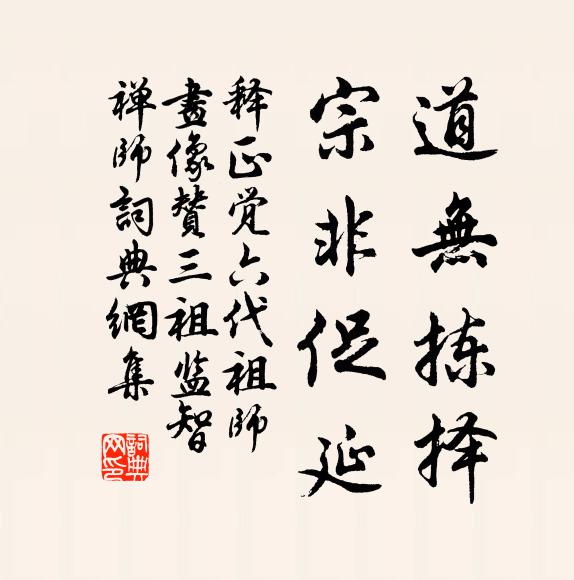 道無拣择
宗非促延
释正觉六代祖师
畫像赞三祖监智
禅师詞典網集
詞典
网印